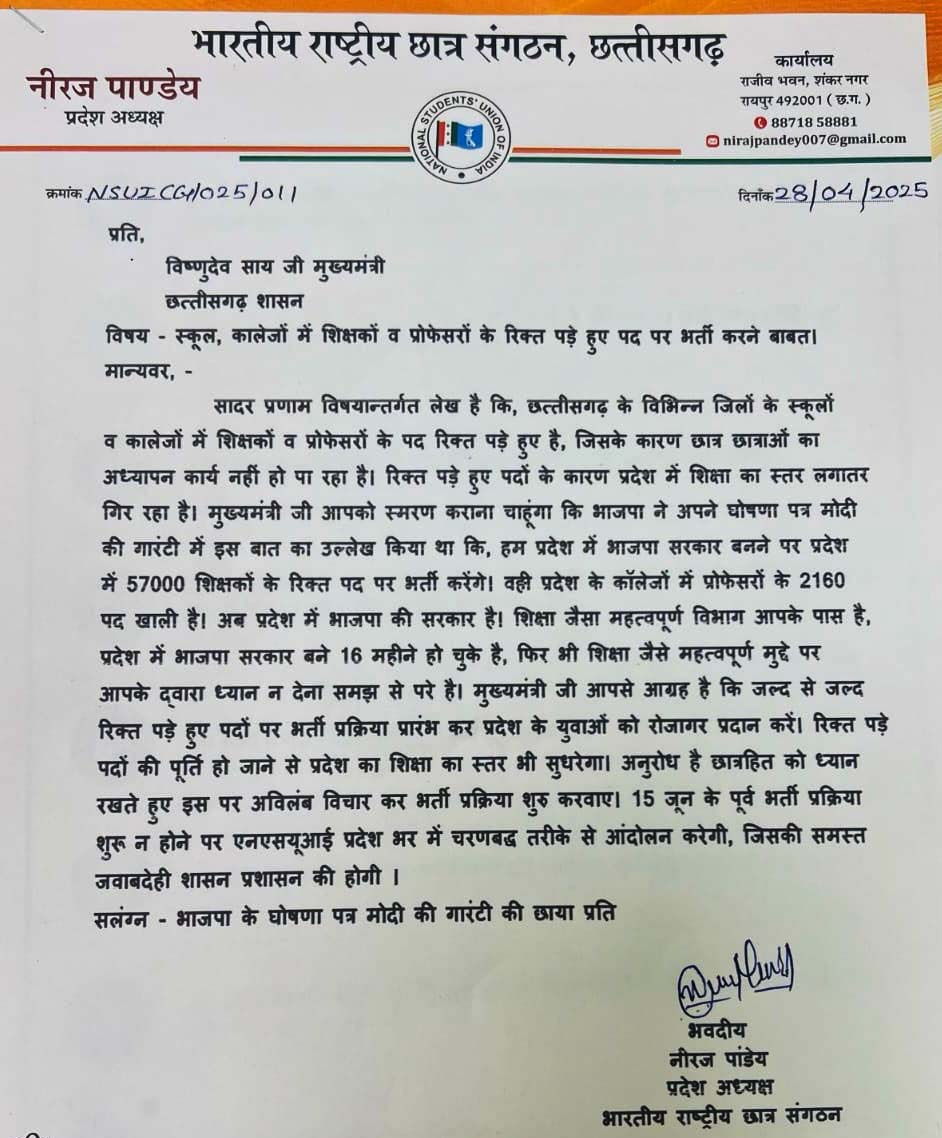 भारतीय राष्ट्रीय छात्र संगठन, छत्तीसगढ़
नीरज पाण्डेय
प्रदेश अध्यक्ष
NATIONAL STUDENTS' UNION OF INDIA
कार्यालय
राजीव भवन, शंकर नगर
रायपुर 492001 ( छ.ग. )
88718 58881
nirajpandey007@gmail.com
क्रमांक NSUICG/025/011
दिनाँक 28/04/2025
प्रति,
विष्णुदेव साय जी मुख्यमंत्री
छत्तीसगढ़ शासन
विषय - स्कूल, कालेजों में शिक्षकों व प्रोफेसरों के रिक्त पड़े हुए पद पर भर्ती करने बाबत।
मान्यवर, -
सादर प्रणाम विषयान्तर्गत लेख है कि, छत्तीसगढ़ के विभिन्न जिलों के स्कूलों
व कालेजों में शिक्षकों व प्रोफेसरों के पद रिक्त पड़े हुए है, जिसके कारण छात्र छात्राओं का
अध्यापन कार्य नहीं हो पा रहा है। रिक्त पड़े हुए पदों के कारण प्रदेश में शिक्षा का स्तर लगातर
गिर रहा है। मुख्यमंत्री जी आपको स्मरण कराना चाहूंगा कि भाजपा ने अपने घोषणा पत्र मोदी
की गारंटी में इस बात का उल्लेख किया था कि, हम प्रदेश में भाजपा सरकार बनने पर प्रदेश
में 57000 शिक्षकों के रिक्त पद पर भर्ती करेंगे। वही प्रदेश के कॉलेजों में प्रोफेसरों के 2160
पद खाली है। अब प्रदेश में भाजपा की सरकार है। शिक्षा जैसा महत्वपूर्ण विभाग आपके पास है,
प्रदेश में भाजपा सरकार बने 16 महीने हो चुके है, फिर भी शिक्षा जैसे महत्वपूर्ण मुद्दे पर
आपके द्वारा ध्यान न देना समझ से परे है। मुख्यमंत्री जी आपसे आग्रह है कि जल्द से जल्द
रिक्त पड़े हुए पदों पर भर्ती प्रक्रिया प्रारंभ कर प्रदेश के युवाओं को रोजागर प्रदान करें। रिक्त पड़े
पदों की पूर्ति हो जाने से प्रदेश का शिक्षा का स्तर भी सुधरेगा। अनुरोध है छात्रहित को ध्यान
रखते हुए इस पर अविलंब विचार कर भर्ती प्रक्रिया शुरु करवाए। 15 जून के पूर्व भर्ती प्रक्रिया
शुरू न होने पर एनएसयूआई प्रदेश भर में चरणबद्ध तरीके से आंदोलन करेगी, जिसकी समस्त
जवाबदेही शासन प्रशासन की होगी ।
सलंग्न - भाजपा के घोषणा पत्र मोदी की गारंटी की छाया प्रति
भवदीय
नीरज पांडेय
प्रदेश अध्यक्ष
भारतीय राष्ट्रीय छात्र संगठन